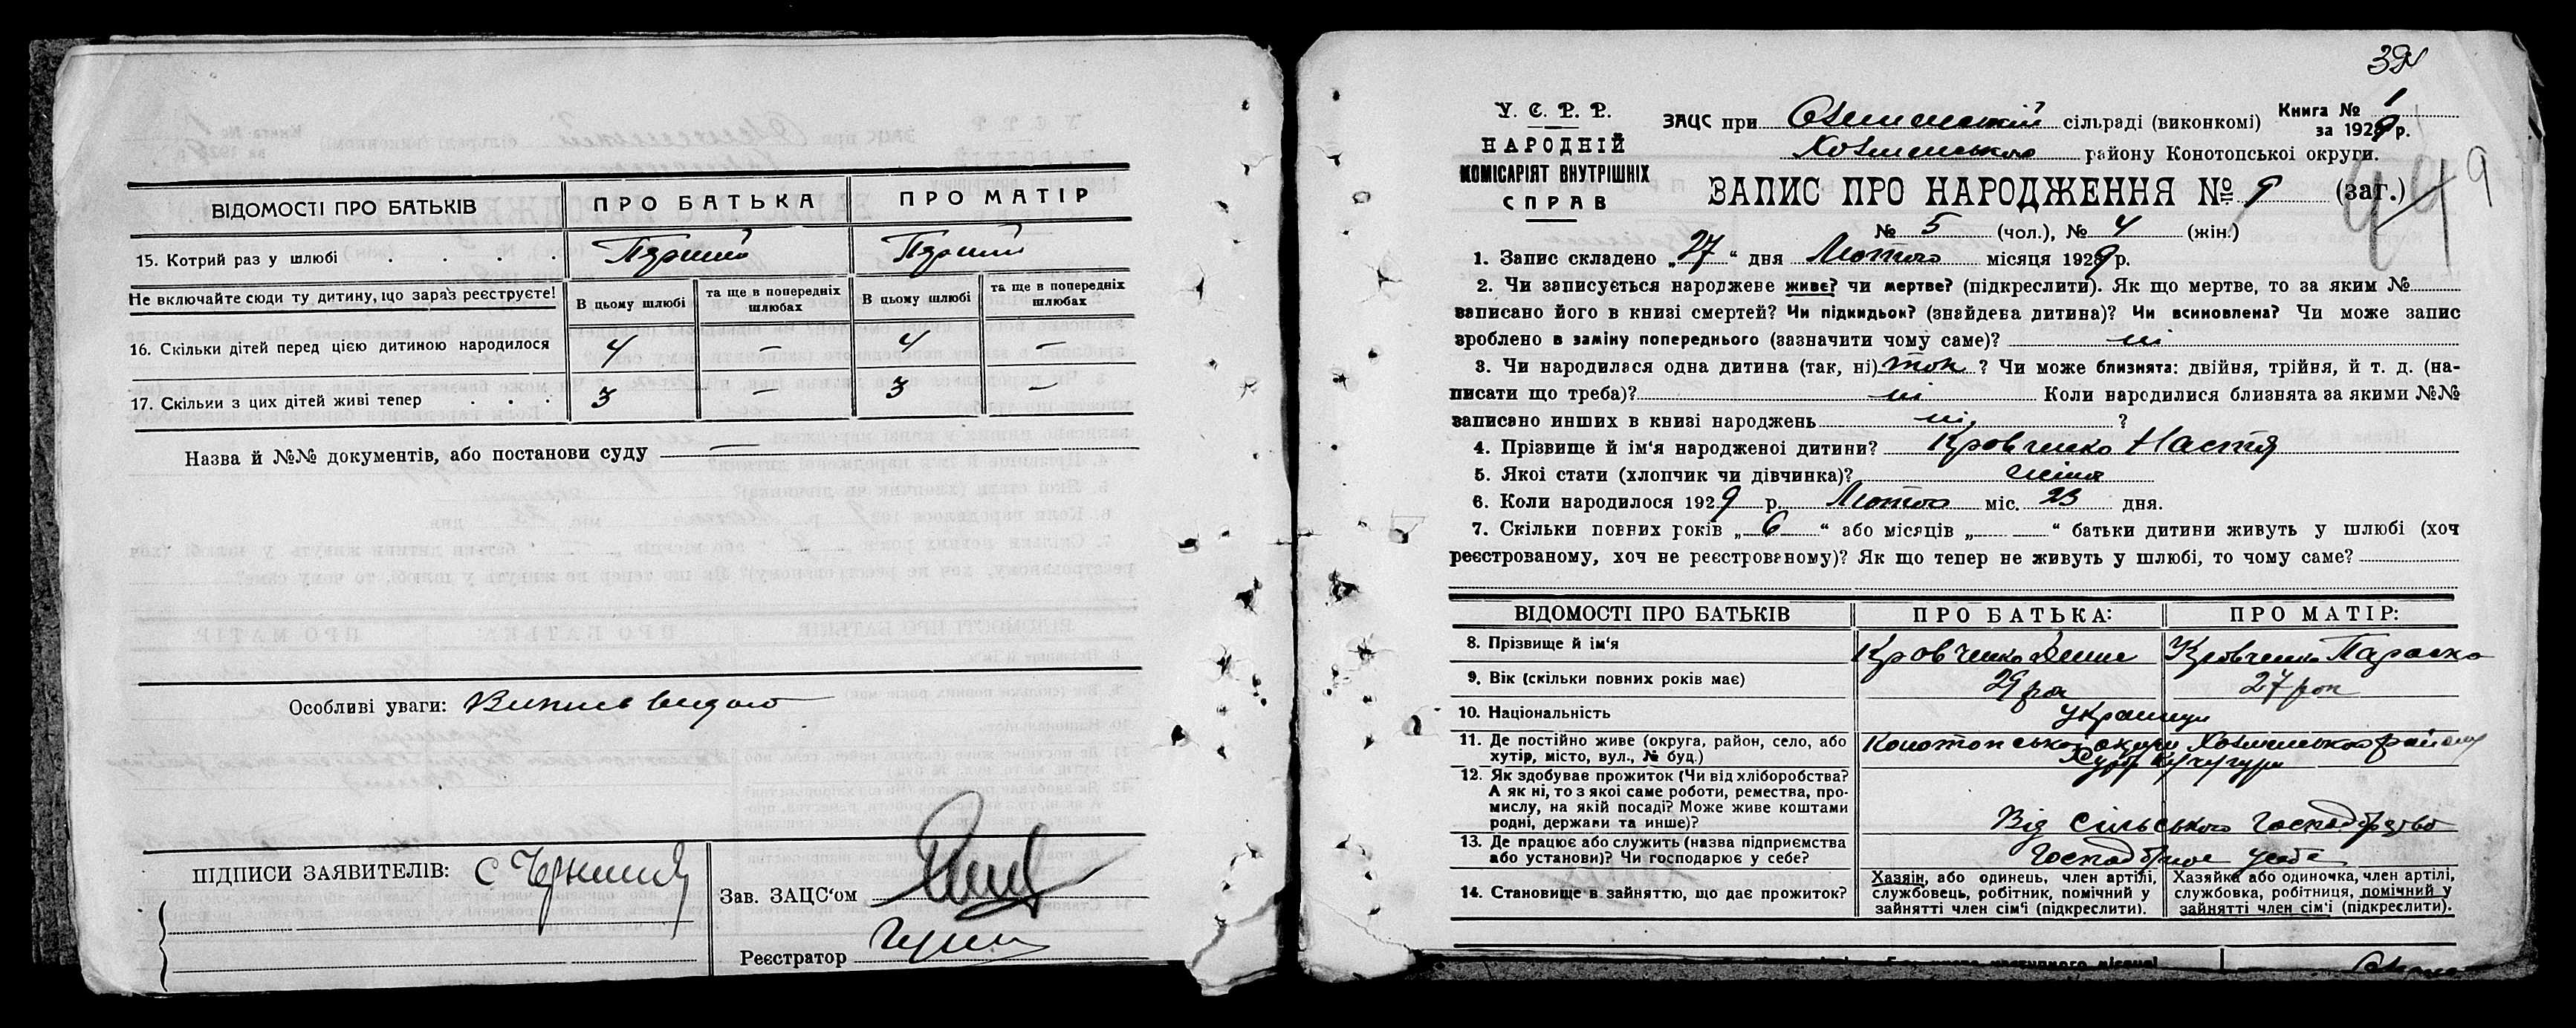 ВІДОМОСТІ ПРО БАТЬКІВ
ПРО БАТЬКА
ПРО МАТІР
15. Котрий раз у шлюбі
Перший
Перший
Не включайте сюди ту дитину, що зараз реєструєте!
В цьому шлюбі
та ще в попередніх шлюбах
В цьому шлюбі
та ще в попередніх шлюбах
16. Скільки дітей перед цією дитиною народилося
4 — 4 —
17. Скільки з цих дітей живі тепер
3 — 3 —
Назва й №№ документів, або постанови суду —
Особливі уваги: Випись видано
ПІДПИСИ ЗАЯВИТЕЛІВ:
Зав. ЗАЦС‘ом
Реєстратор
39
У. С. Р. Р.
НАРОДНІЙ
КОМІСАРІЯТ ВНУТРІШНІХ
СПРАВ
ЗАЦС при сільраді (виконкомі)
Книга № 1
за 1929 р.
району Конотопської округи.
ЗАПИС ПРО НАРОДЖЕННЯ № 9 (заг.)
№ 5 (чол.), № 4 (жін.)
1. Запис складено „27“ дня Лютого місяця 1929 р.
2. Чи записується народжене живе? чи мертве? (підкреслити). Як що мертве, то за яким №
записано його в книзі смертей? Чи підкидьок? (знайдена дитина)? Чи всиновлена? Чи може запис
зроблено в заміну попереднього (зазначити чому саме)? ні
3. Чи народилася одна дитина (так, ні) так ? Чи може близнята: двійня, трійня, й т. д. (на-
писати що треба)? ні Коли народилися близнята за якими №№
записано инших в книзі народжень ні ?
4. Прізвище й ім‘я народженої дитини? Кравченко Настя
5. Якої стати (хлопчик чи дівчинка)?
6. Коли народилося 1929 р. Лютого міс. 23 дня.
7. Скільки повних років „6“ або місяців „ “ батьки дитини живуть у шлюбі (хоч
реєстрованому, хоч не реєстрованому)? Як що тепер не живуть у шлюбі, то чому саме?
ВІДОМОСТІ ПРО БАТЬКІВ
ПРО БАТЬКА:
ПРО МАТІР:
8. Прізвище й ім‘я
Кравченко Денис
Кравченко Параска
9. Вік (скільки повних років має)
29 рок
27 рок
10. Національність
українці
11. Де постійно живе (округа, район, село, або
хутір, місто, вул., № буд.)
Конотопської округи району
Хутір Кучугури
12. Як здобуває прожиток (Чи від хліборобства?
А як ні, то з якої саме роботи, ремества, про-
мислу, на якій посаді? Може живе коштами
родні, держави та инше)?
Від сільського господарства
13. Де працює або служить (назва підприємства
або установи)? Чи господарює у себе?
Господарює у себе
14. Становище в зайняттю, що дає прожиток?
Хазяїн, або одинець, член артілі,
службовець, робітник, помічний у
зайнятті член сім‘ї (підкреслити).
Хазяйка або одиночка, член артілі,
службовка, робітниця, помічний у
зайнятті член сім‘ї (підкреслити).